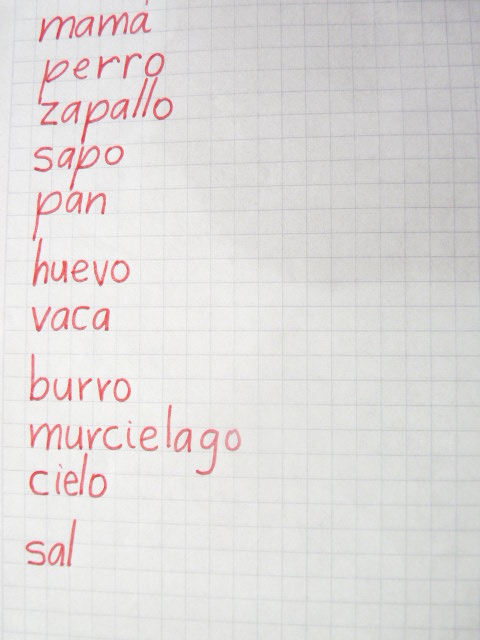 mamá
perro
zapallo
sapo
pan
huevo
vaca
burro
murcielago
cielo
sal